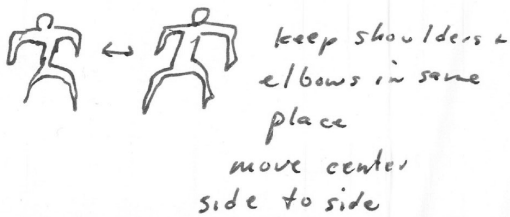 keep shoulders +
elbows in same
place
move center
side to side